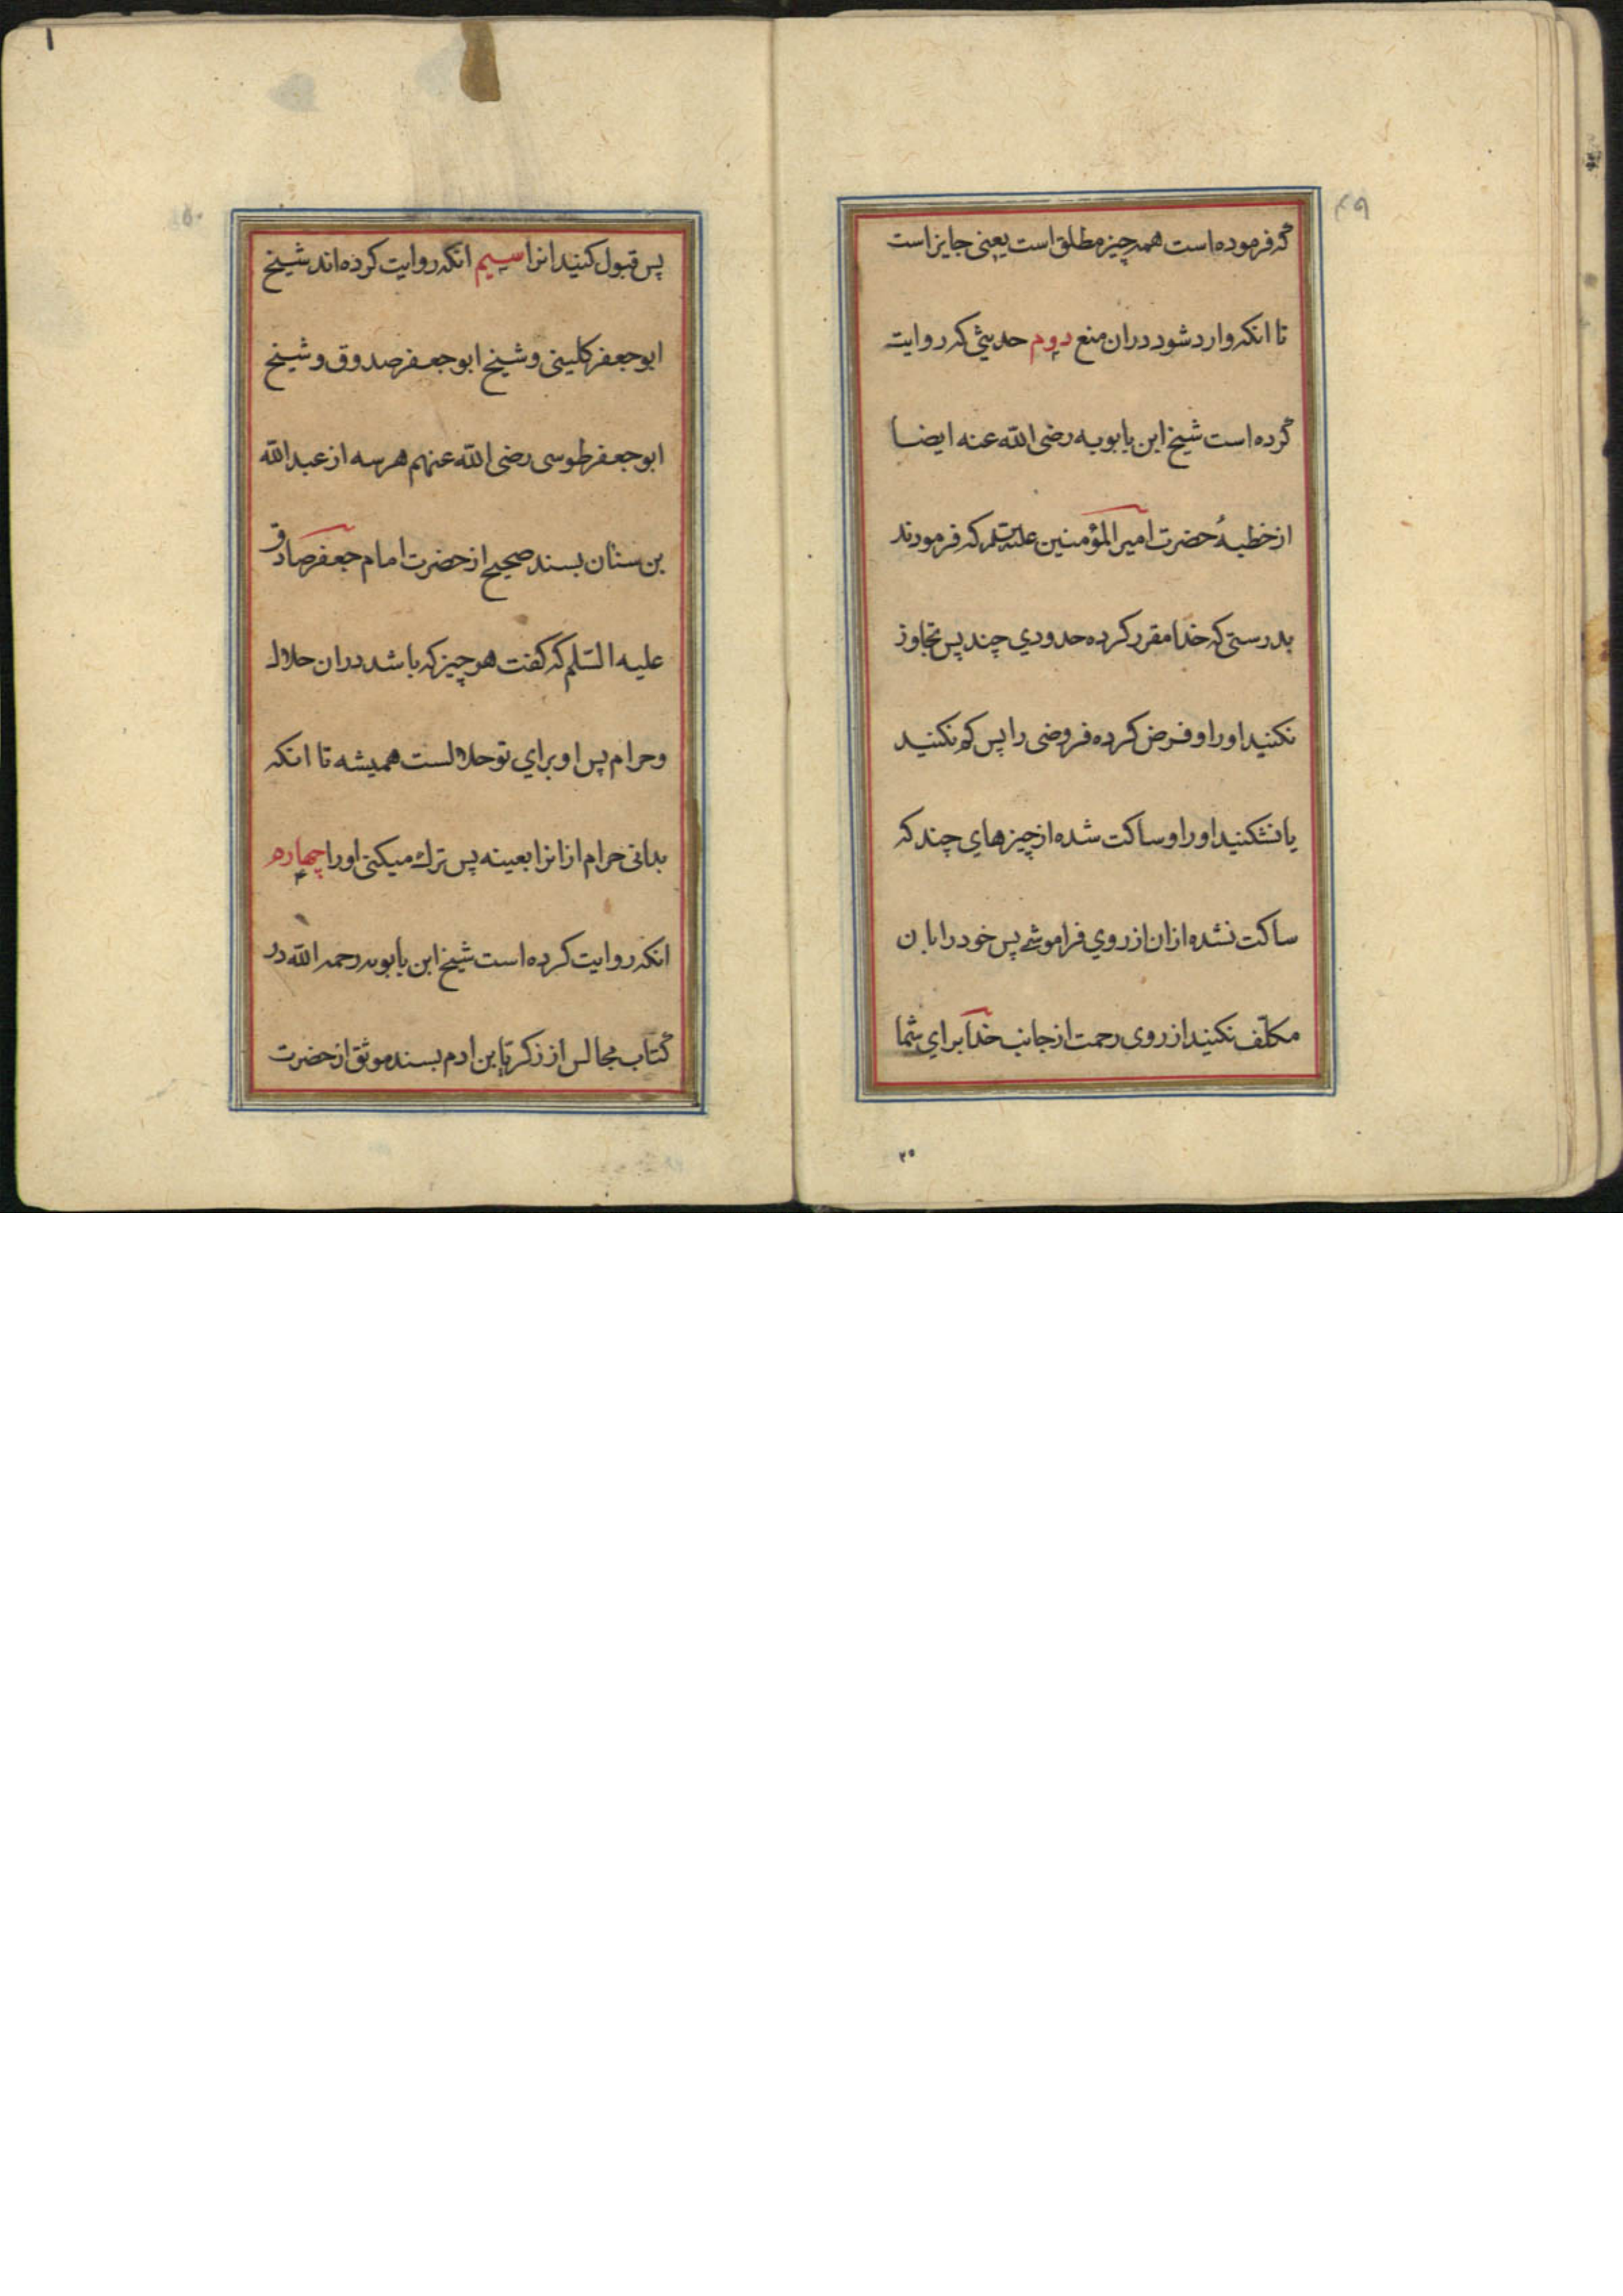 ۴۹
که فرموده است همه چیز مطلق است یعنی جایز است
تا انکه وارد شود دران منع دویم حدیثی که روایت
کرده است شیخ ابن بابویه رضی الله عنه ایضا
از خطبهٔ حضرت امیر المؤمنین علیه السلم که فرمودند
بدرستی که خدا مقرر کرده حدودي چند پس تجاوز
نکنید او را و فرض کرده فروضی را پس کم نکنید
یا نشکنید او را و ساکت شده از چیزهاي چند که
ساکت نشده ازان از روي فراموشے پس خود را بان
مکلّف نکنید از روی رحمت از جانب خدا براي شما
۵۰
پس قبول کنید انرا سییم انکه روایت کرده اند شیخ
ابو جعفر کلینی و شیخ ابو جعفر صدوق و شیخ
ابو جعفر طوسی رضی الله عنهم هر سه از عبد الله
بن سنان بسند صحیح از حضرت امام جعفر صادق
علیه السّلم که گفت هر چیز که باشد دران حلال
و حرام پس او براي تو حلالست همیشه تا انکه
بدانی حرام از انرا بعینه پس ترك میکنی او را چهارم
انکه روایت کرده است شیخ ابن بابویه رحمه الله در
کتاب مجالس از زکریّا بن ادم بسند موثق از حضرت